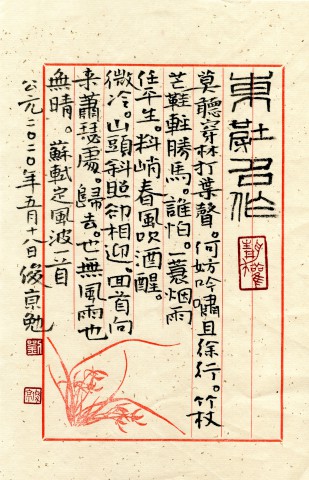 東坡名作
莫聽穿林打葉聲。何妨吟嘯且徐行。竹杖
芒鞋輕勝馬。誰怕。蓑烟雨
任平生。料峭春風吹酒醒。
微冷。山頭斜照却相迎。回首向
来蕭瑟處。歸去。也無風雨也
無晴。蘇軾定風波一首
公元二〇二〇年五月十八日俊京勉
劉